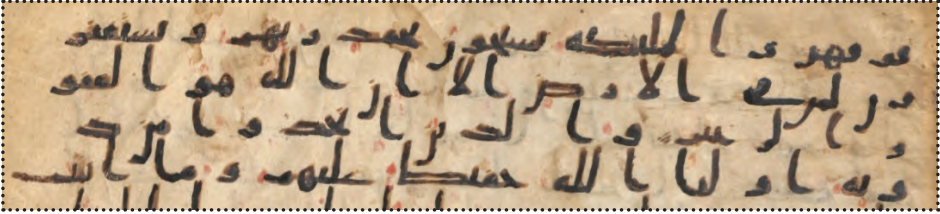 فوقهن والملئكه يسبحون بحمد ربهم ويستغفر
ون لمن في الارض الا ان الله هو الغفو
ر الرحيم والذين اتخذوا من د
ونه اوليا الله حفيظ عليهم وما انت